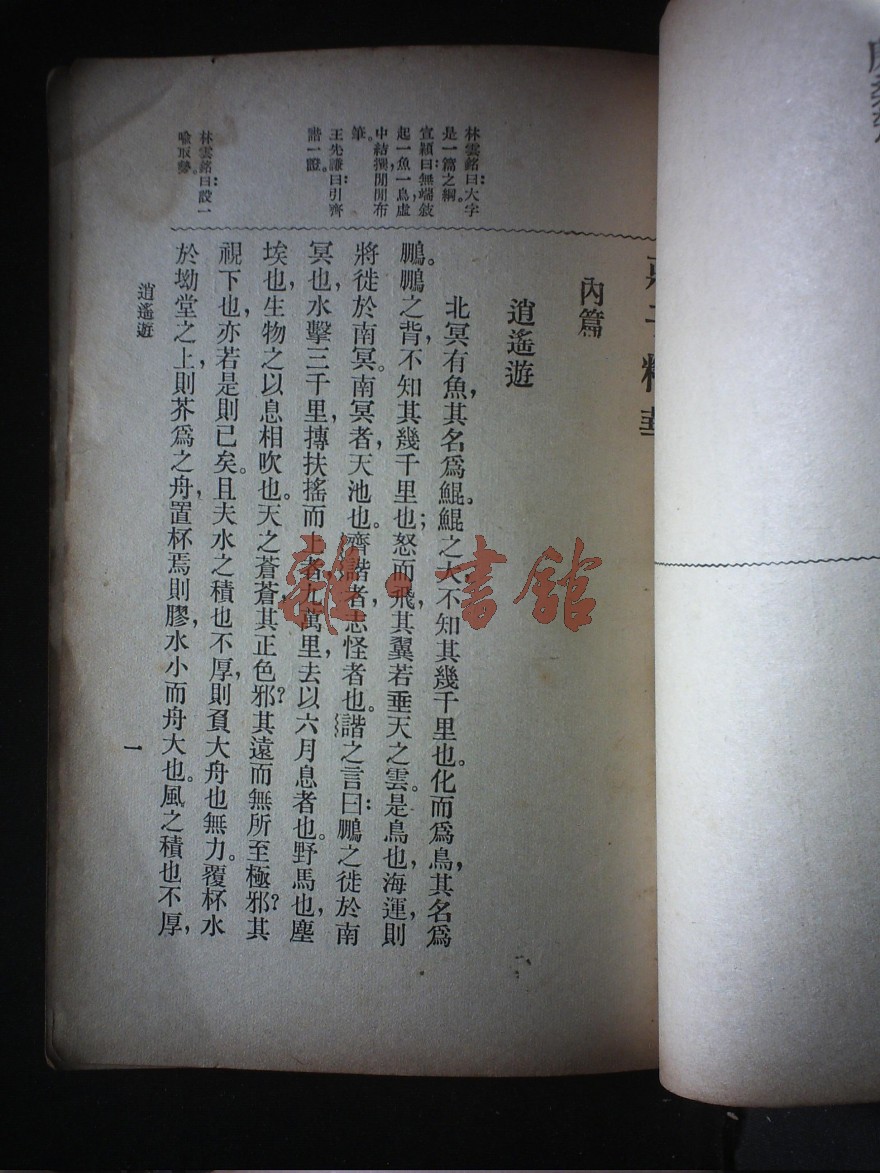 莊子精華
內篇
逍遙遊
北冥有魚，其名爲鯤。鯤之大，不知其幾千里也。化而爲鳥，其名爲
鵬。鵬之背，不知其幾千里也；怒而飛，其翼若垂天之雲。是鳥也，海運則
將徙於南冥。南冥者，天池也。齊諧者，志怪者也。諧之言曰：鵬之徙於南
冥也，水擊三千里，摶扶搖而上者九萬里，去以六月息者也。野馬也，塵
埃也，生物之以息相吹也。天之蒼蒼，其正色邪？其遠而無所至極邪？其
視下也，亦若是則已矣。且夫水之積也不厚，則負大舟也無力。覆杯水
於坳堂之上，則芥爲之舟，置杯焉則膠，水小而舟大也。風之積也不厚，
林雲銘曰：大字
是一篇之綱。
宣穎曰：無端敍
起一魚一鳥，虛
中結撰，閒閒布
筆。
王先謙曰：引齊
諧一證。
林雲銘曰：設一
喩取勢。
逍遙遊
一
雜·書館